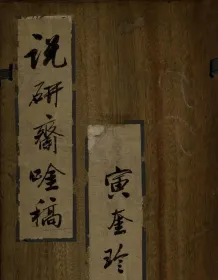 说研齋唫稿
寅奎珍